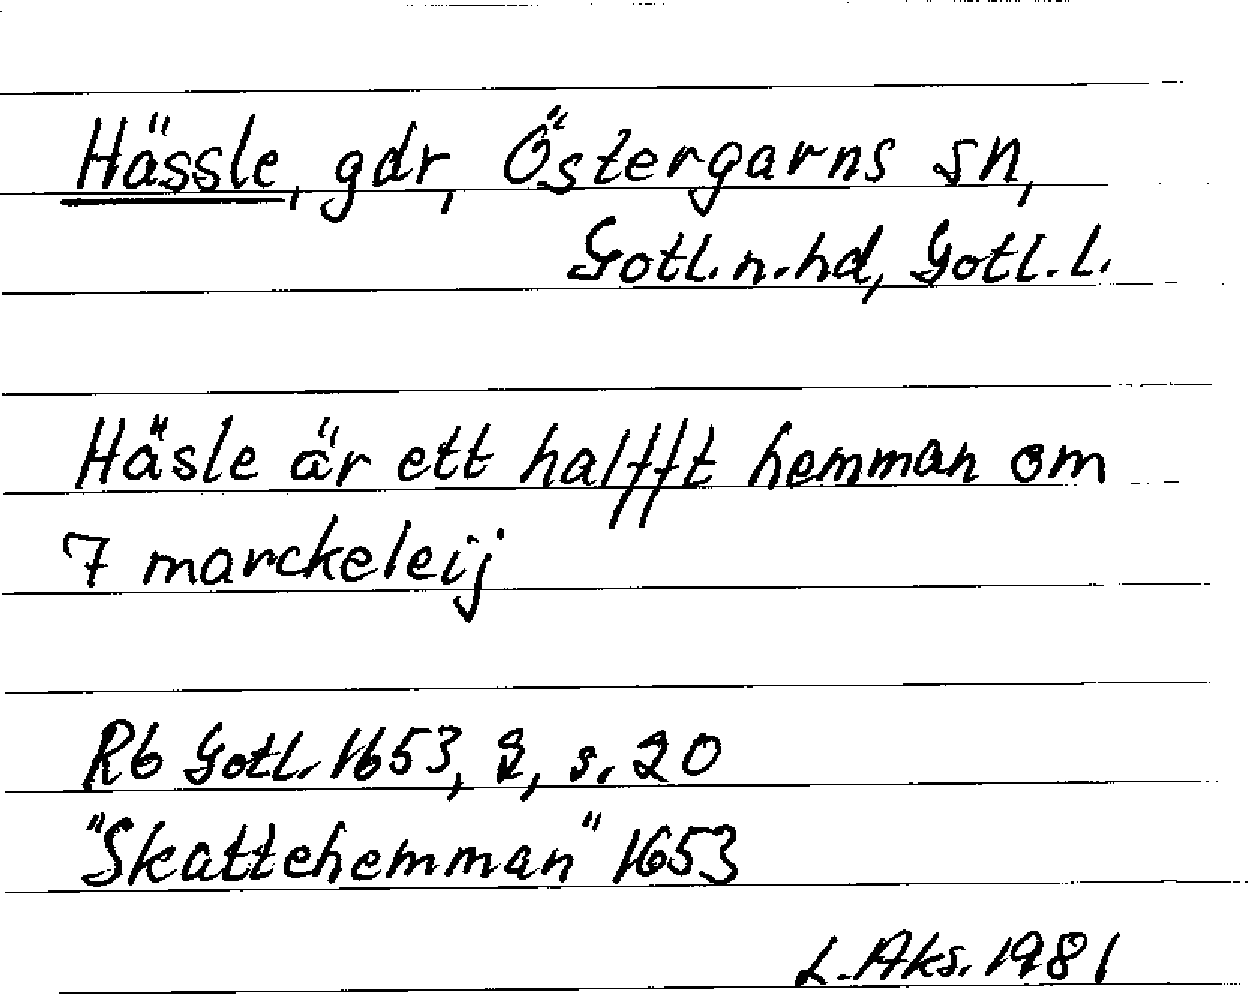 Hässle, gdr, Östergarns sn,
Gotl. n. hd, Gotl. l.
Häsle är ett halfft hemman om
7 marckeleij
Rb Gotl. 1653, 2, s. 20
"Skattehemman" 1653
L. Aks. 1981